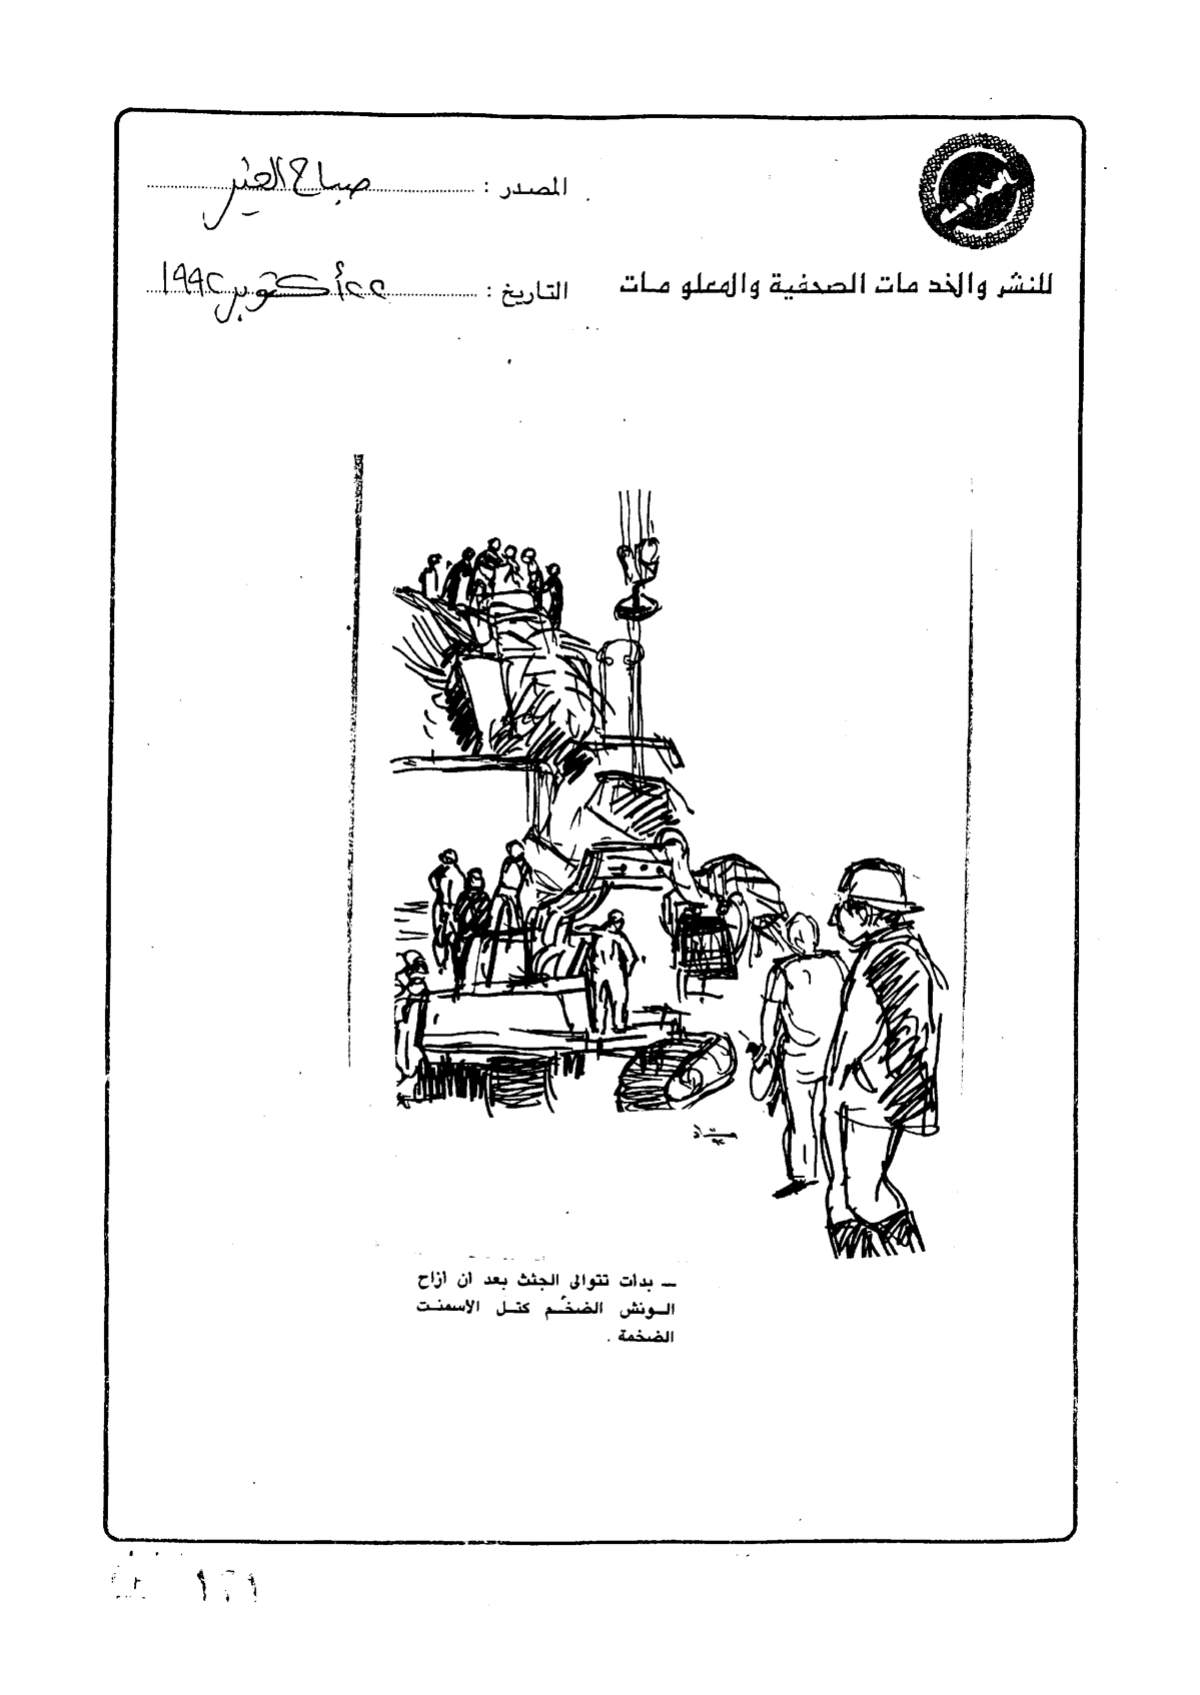 المصدر : صباح الخير
للنشر والخدمات الصحفية والمعلومات
التاريخ : ٢٢ أكتوبر ١٩٩٢
ــ بدات تتوالى الجثث بعد ان ازاح
الـونش الضخم كتـل الاسمنـت
الضخمة .